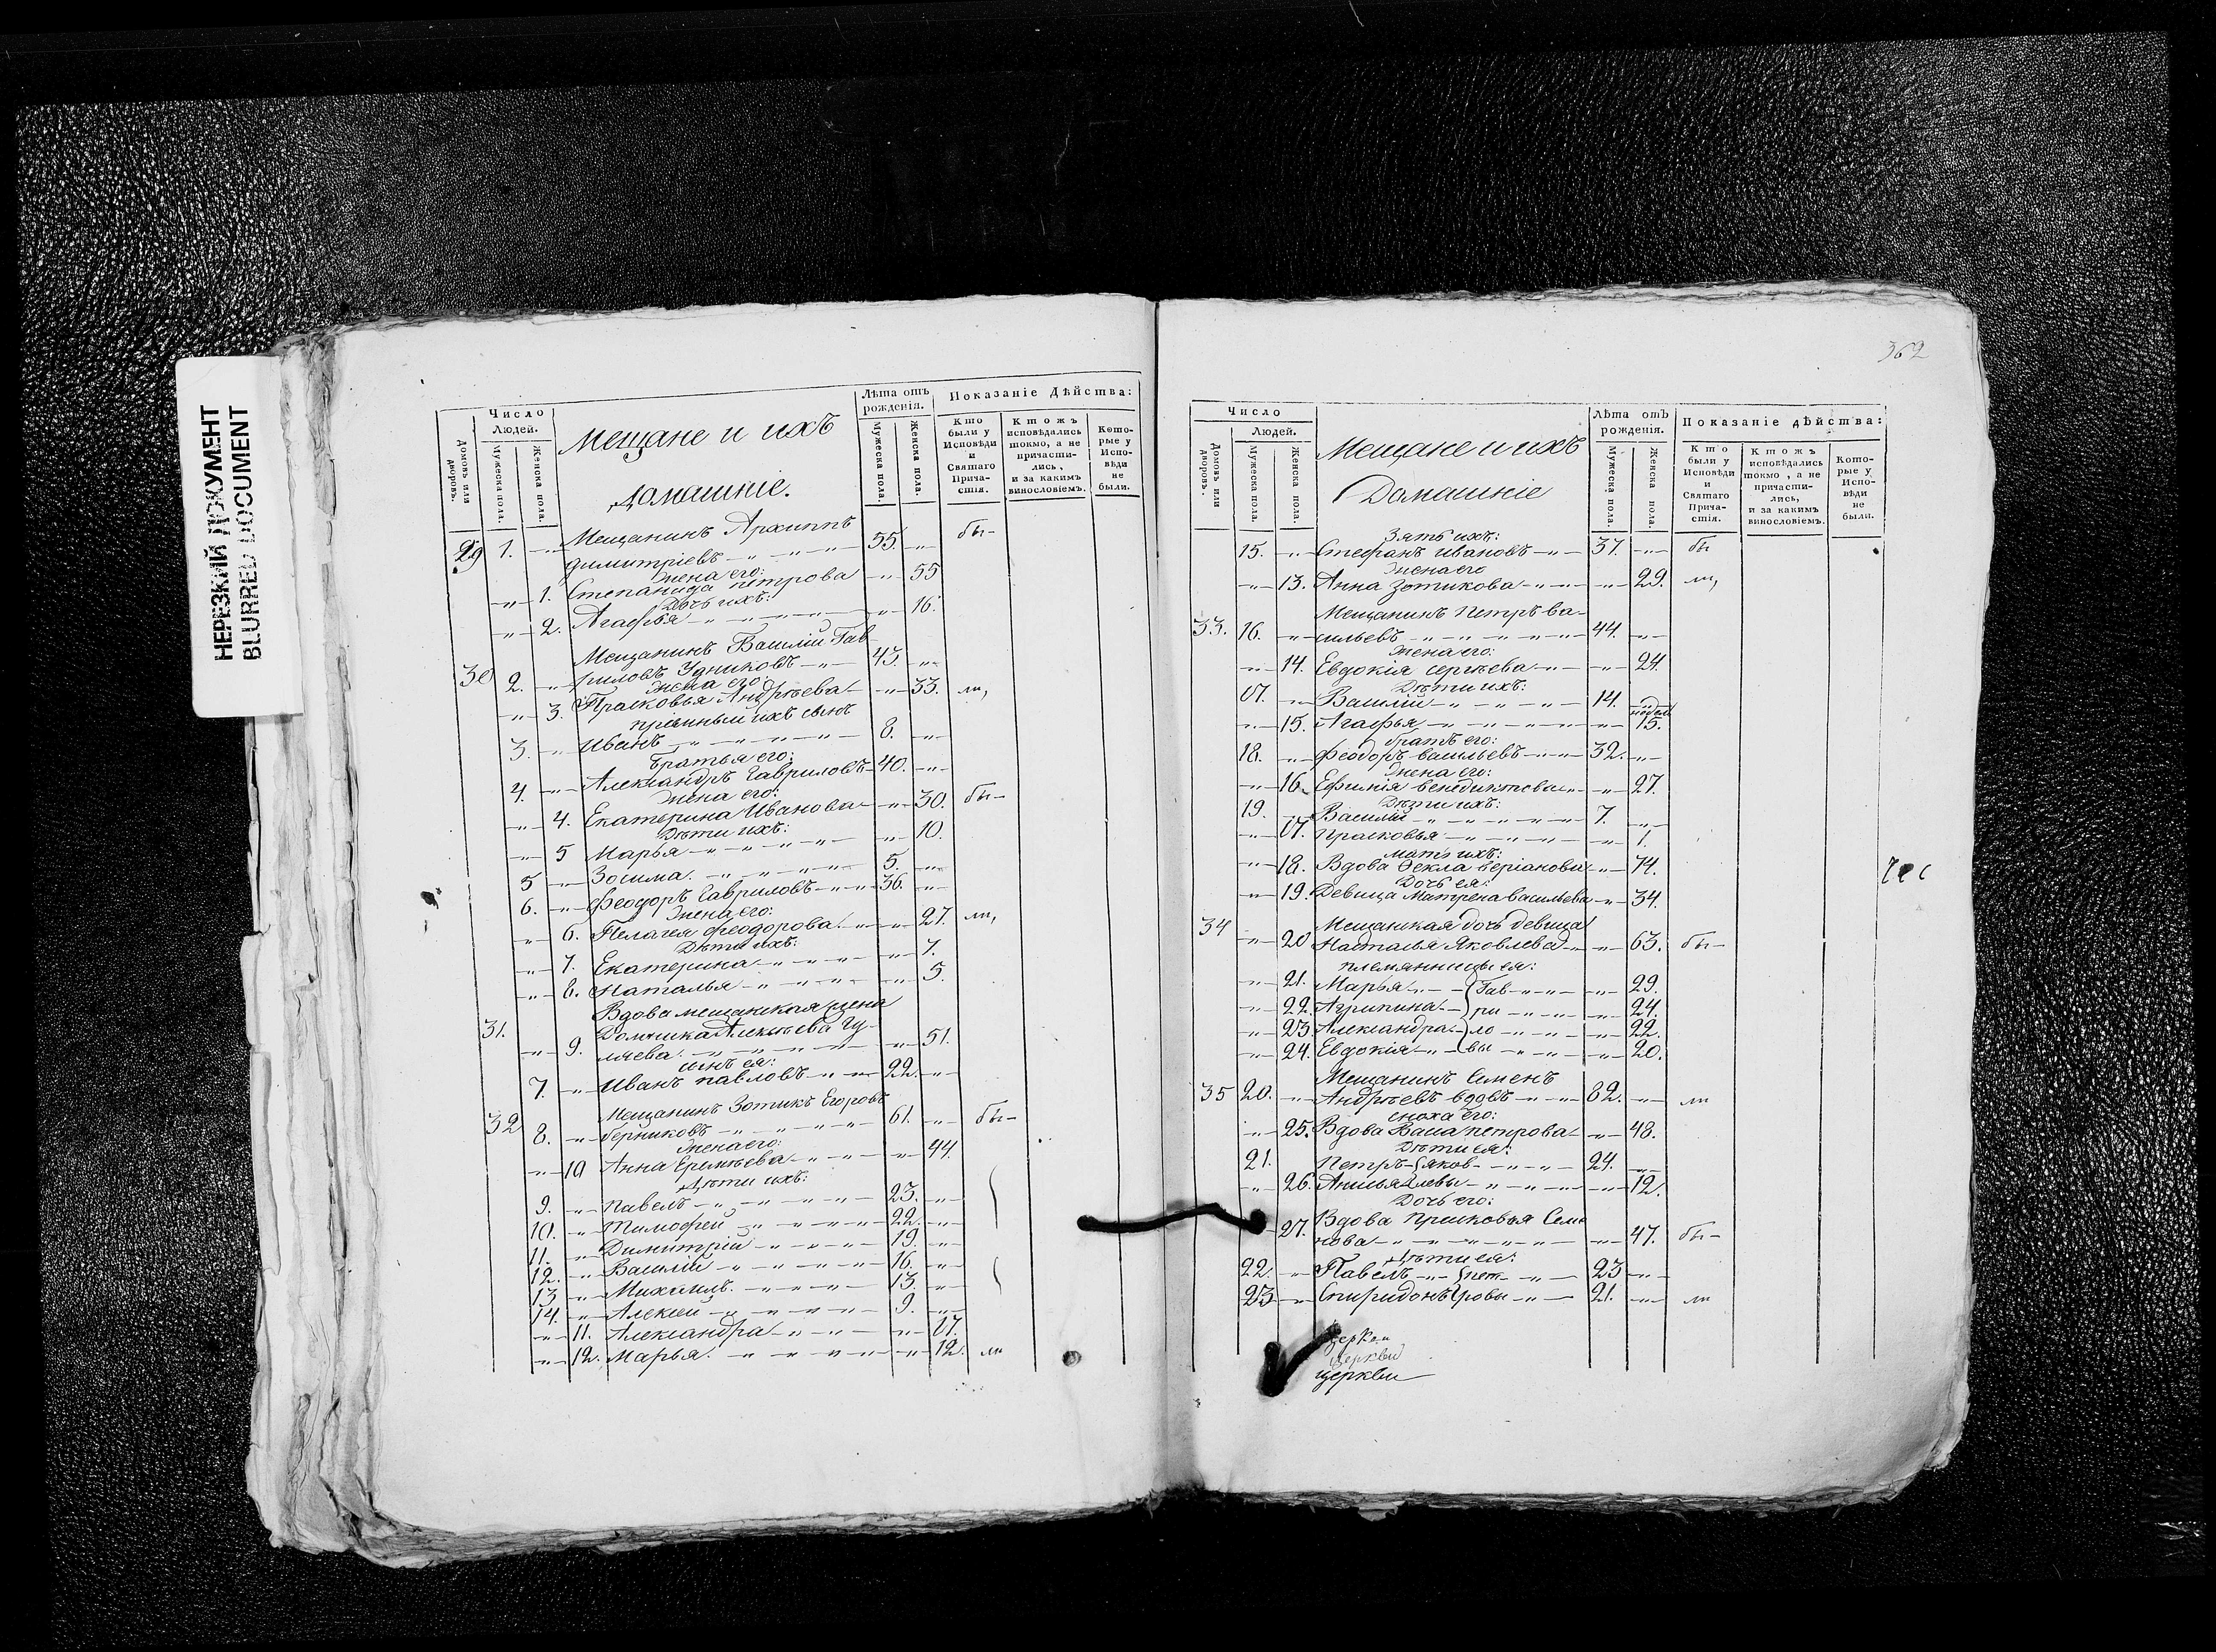 НЕРЕЗКИЙ ДОКУМЕНТ
BLURRED DOCUMENT
Домовъ или дворовъ.
Число Людей.
Мужеска пола.
Женска пола.
Мещане и ихъ
Домашніе.
Лѣта отъ рожденія.
Мужеска пола.
Женска пола.
Показаніе Дѣйства:
Кто были у Исповѣди и Святаго Прича-стія.
Ктожъ исповѣдались токмо, а не причасти-лись, и за какимъ винословіемъ.
Кото-рые у Испо-вѣди не были.
29 1. Мещанинъ Архиппъ
Димитріевъ 55. бы-
Жена его:
1. Степанида петрова 55
Дочь ихъ:
2. Агафья 16.
Мещанинъ Василій Гав-
30 2. риловъ 43.
Жена его:
3. Прасковья Андрѣева 33. ли,
пріемный ихъ сынъ
3. Иванъ 8.
Братья его:
4. Александръ Гавриловъ 40.
Жена его:
4. Екатерина Иванова 30. бы-
Дѣти ихъ:
5 Марья 10.
5 Зосима 5
6. Феодоръ Гавриловъ 36.
Жена его:
6. Пелагея Феодорова 27. ли,
Дѣти ихъ:
7. Екатерина 7.
8. Наталья 5.
Вдова мещанская жена
31. Домника Алексѣева Гу-
9. ляева 51.
сынъ ея:
7. Иванъ павловъ 22.
Мещанинъ Зотикъ Егоровъ
32 8. берниковъ 61. бы-
Жена его:
10 Анна Еремѣева 44.
Дѣти ихъ:
9. павелъ 23.
10. Тимофей 22.
11. Димитрій 19.
12. Василій 16.
13 Михаилъ 13
14. Алексей 9.
11. Александра 17.
12. Марья 12. ли
362
Домовъ или дворовъ.
Число Людей.
Мужеска пола.
Женска пола.
Мещане и ихъ
Домашніе
Лѣта отъ рожденія.
Мужеска пола.
Женска пола.
Показаніе дѣйства:
Кто были у Исповѣди и Святаго Прича-стія.
Ктожъ исповѣдались токмо, а не причасти-лись, и за какимъ винословіемъ.
Кото-рые у Испо-вѣди не были.
Зять ихъ:
15. Стефанъ ивановъ 37. бы
Жена его
13. Анна Зотикова 29. ли,
Мещанинъ Петръ ва-
33. 16. сильевъ 44.
Жена его:
14. Евдокія сергѣева 24.
Дѣти ихъ:
17. Василій 14.
недел
15. Агафья 15.
братъ его:
18. Феодоръ васильевъ 32.
Жена его:
16. Ефимія венедиктова 27.
Дѣти ихъ:
19. Василій 7.
17. прасковья 1.
мать ихъ:
18. Вдова Ѳекла 74.
Дочь ея:
19. Девица Матрена васильева 34.
34 Мещанская дочь девица
20 Наталья Яковлева 63. бы-
племянницы ея:
21. Марья Гав 29.
22. Агрипина ри 24.
23 Александра ло 22.
24. Евдокія вы 20.
Мещанинъ Семенъ
35 20. Андрѣевъ вдовъ 82. ли
сноха его:
25. Вдова петрова 48.
Дѣти ея:
21. Петръ яков 24.
26. Анисья левы 12.
Дочь его:
Вдова прасковья Семе
27. нова 47. бы-
Дѣти ея:
22. Павелъ пет 23
23 Спиридонъ ровы 21. ли
церкви
церкви
церкви